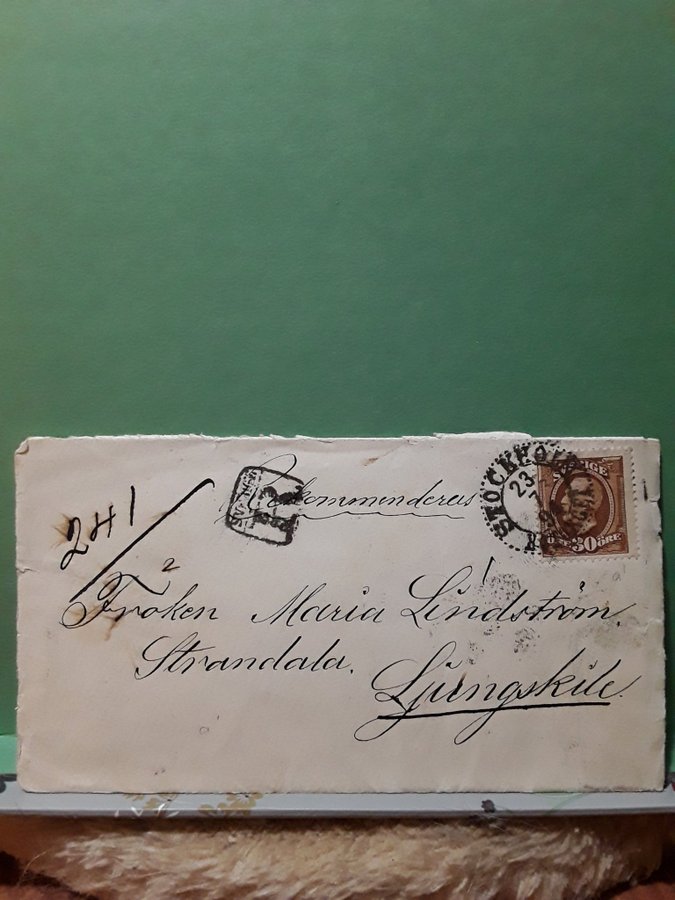 241
R
Rekommenderas
STOCKHOLM
23
7
SVERIGE
ÖRE 30 ÖRE
Fröken Maria Lindström.
Strandala.
Ljungskile.